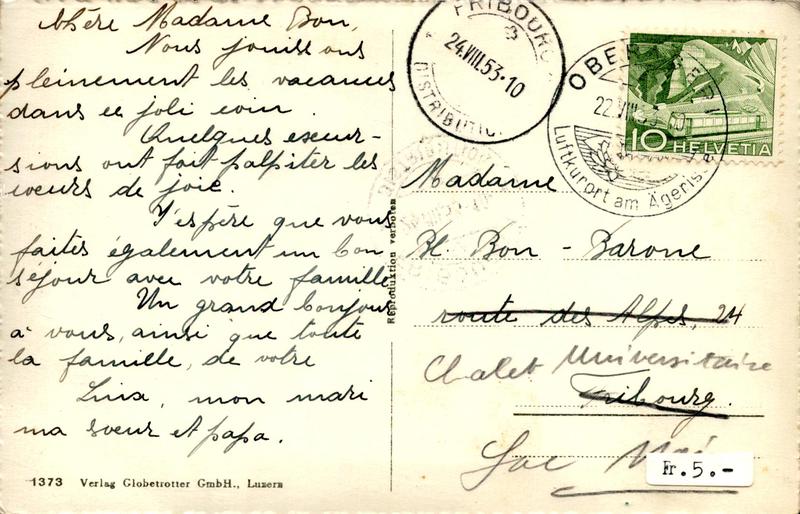 Chère Madame Bon,
Nous jouissons
pleinement les vacances
dans ce joli coin.
Quelques excur-
sions ont fait palpiter les
coeurs de joie.
J'espère que vous
faites également un bon
séjour avec votre famille.
Un grand bonjour
à vous, ainsi que toute
la famille, de votre
Lina, mon mari
ma soeur et papa.
1373 Verlag Globetrotter GmbH., Luzern
Reproduktion verboten
FRIBOURG
24.VIII.53-10
DISTRIBUTIO
OBERÄGERI
22.VIII.53
Luftkurort am Ägerise
10 HELVETIA
Madame
Bl. Bon - Barone
route des Alpes, 24
Chalet Universitaire
Fribourg.
Lac Noir
Fr.5.-